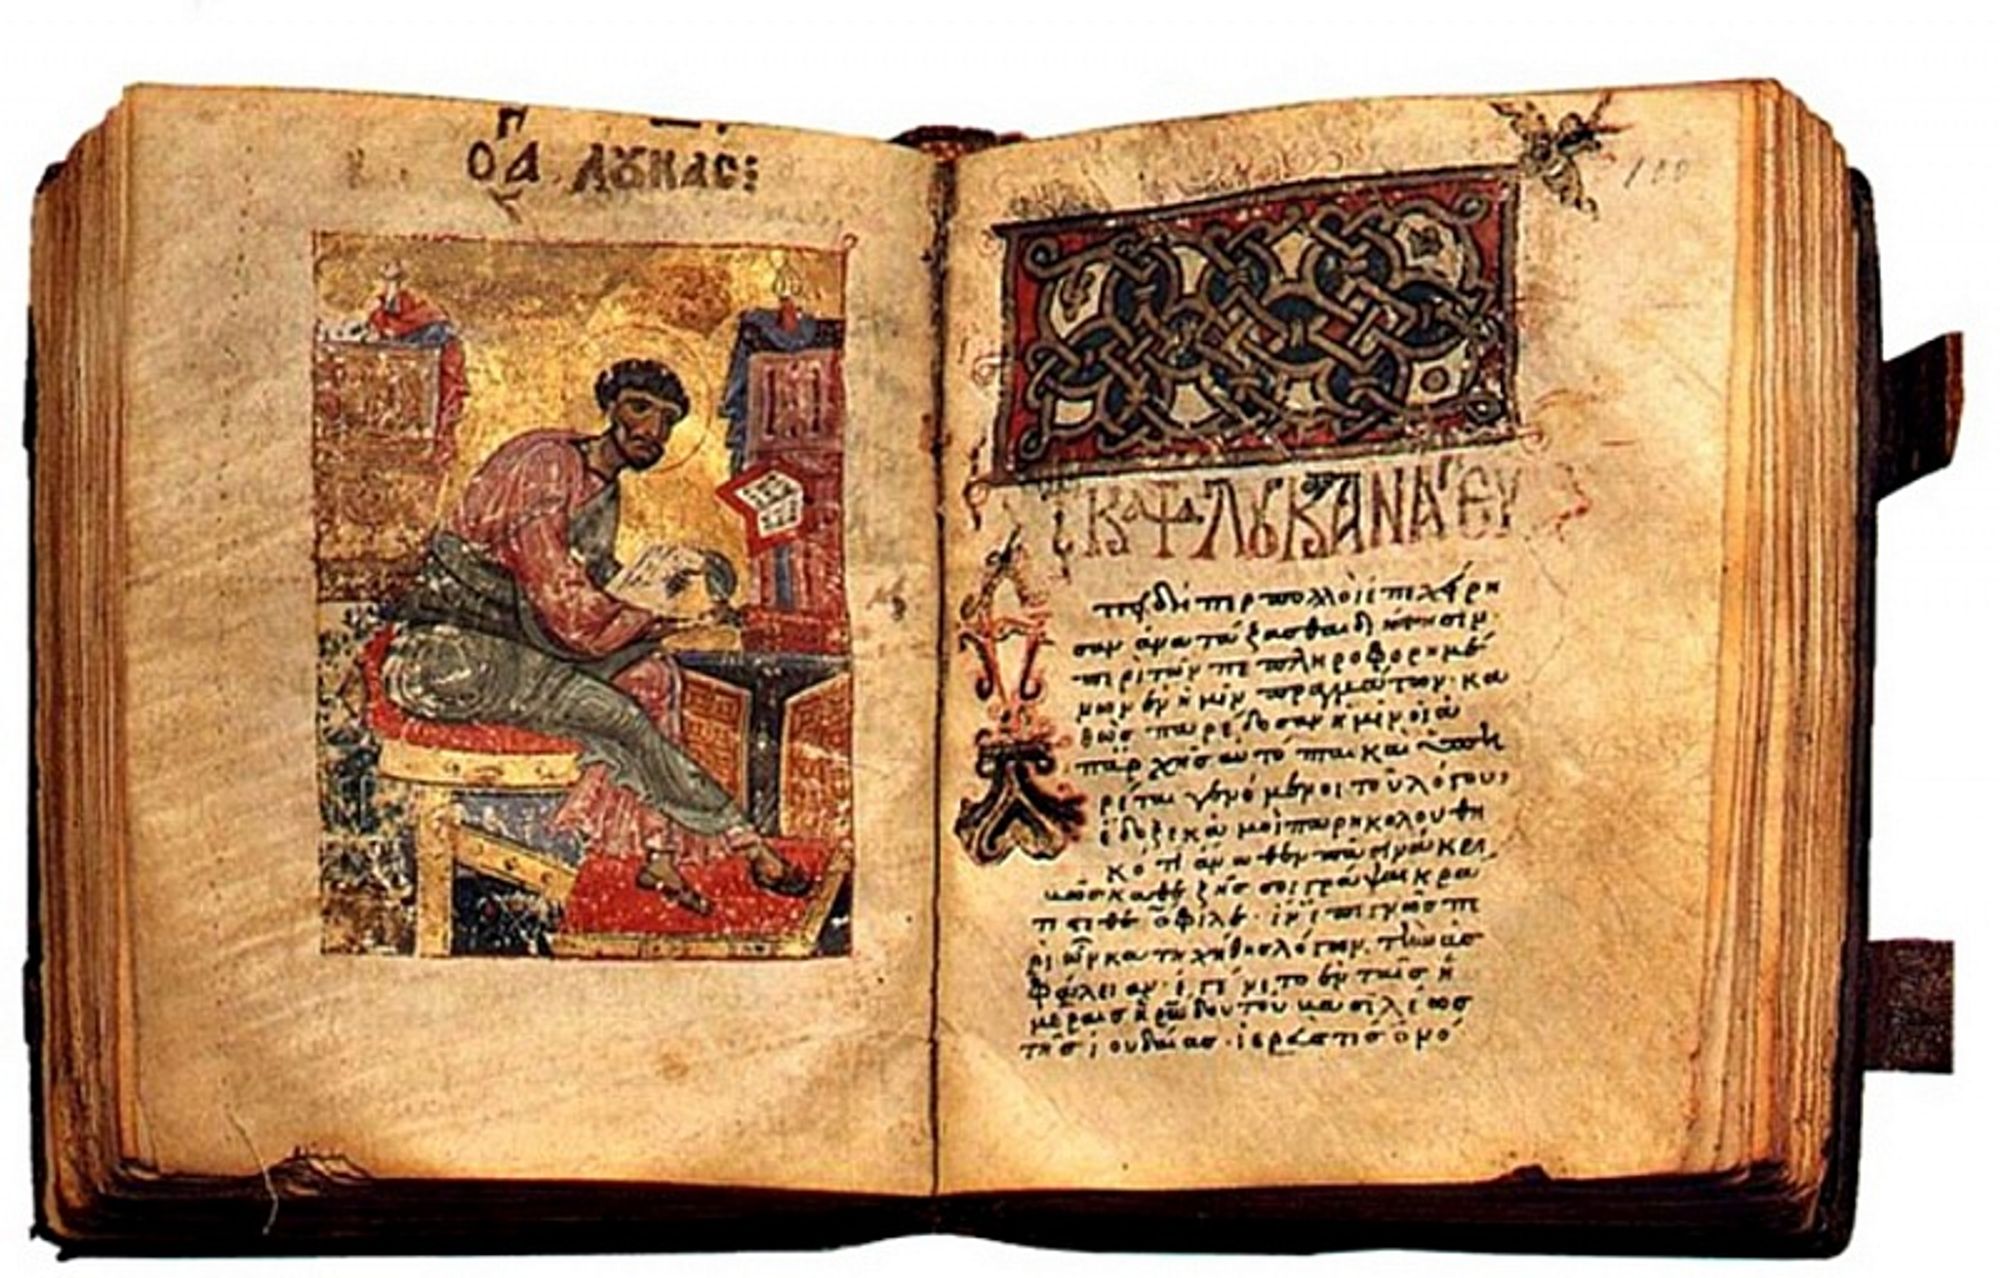 Ο Α ΛȢΚΑC:
100
ΚΑΤΑ ΛȢΚΑΝ ΕΥ
πειδήπερ πολλοὶ ἐπεχείρη
σαν ἀνατάξασθαι διήγησιν
περὶ τῶν πεπληροφορημέ
νων ἐν ἡμῖν πραγμάτων· κα
θὼς παρέδοσαν ἡμῖν οἱ ἀ
π' ἀρχῆς αὐτόπται καὶ ὑπη
ρέται γενόμενοι τοῦ λόγου,
ἔδοξε κἀμοὶ παρηκολουθη
κότι ἄνωθεν πᾶσιν ἀκρι
βῶς καθεξῆς σοι γράψαι κρά
τιστε θεόφιλε· ἵνα ἐπιγνῷς πε
ρὶ ὧν κατηχήθης λόγων τὴν ἀσ
φάλειαν· ἐγένετο ἐν ταῖς ἡ
μέραις ἡρώδου τοῦ βασιλέως
τῆς ἰουδαίας· ἱερεύς τις ὀνό